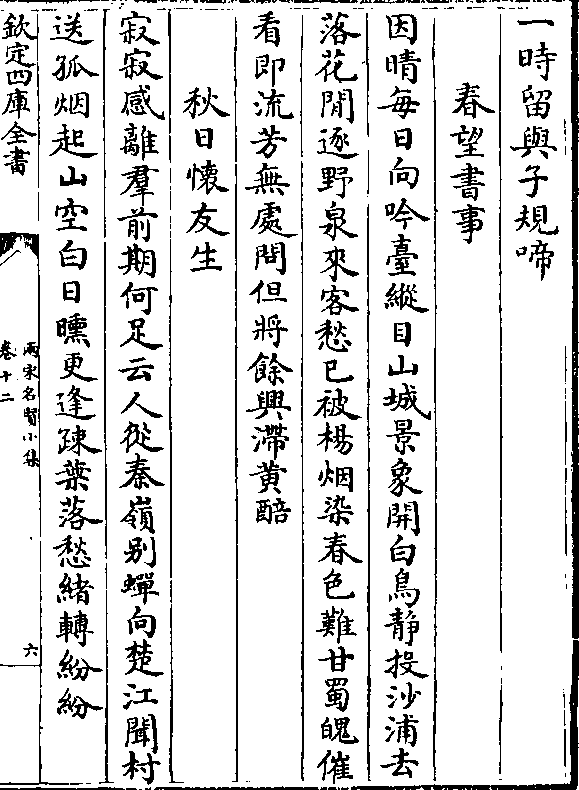 一時留與子規啼
春望書事
因晴每日向吟臺縱目山城景象開白鳥静投沙浦去
落花閒逐野泉來客愁已被楊烟染春色難甘蜀魄催
看即流芳無處問但將餘興滯黄醅
秋日懐友生
寂寂感離羣前期何足云人從秦嶺别蟬向楚江聞村
送孤烟起山空白日曛更逢疎葉落愁緒轉紛紛
欽定四庫全書
兩宋名賢小集
卷十二
六